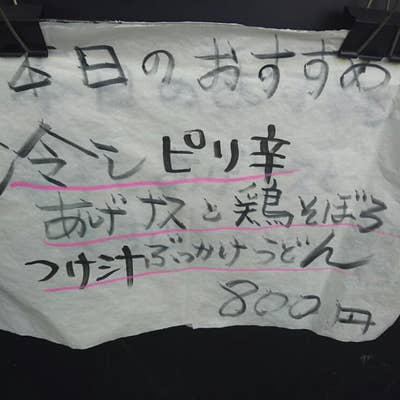 本日のおすすめ
冷しピリ辛
あげナスと鶏そぼろ
つけ汁ぶっかけうどん
800円